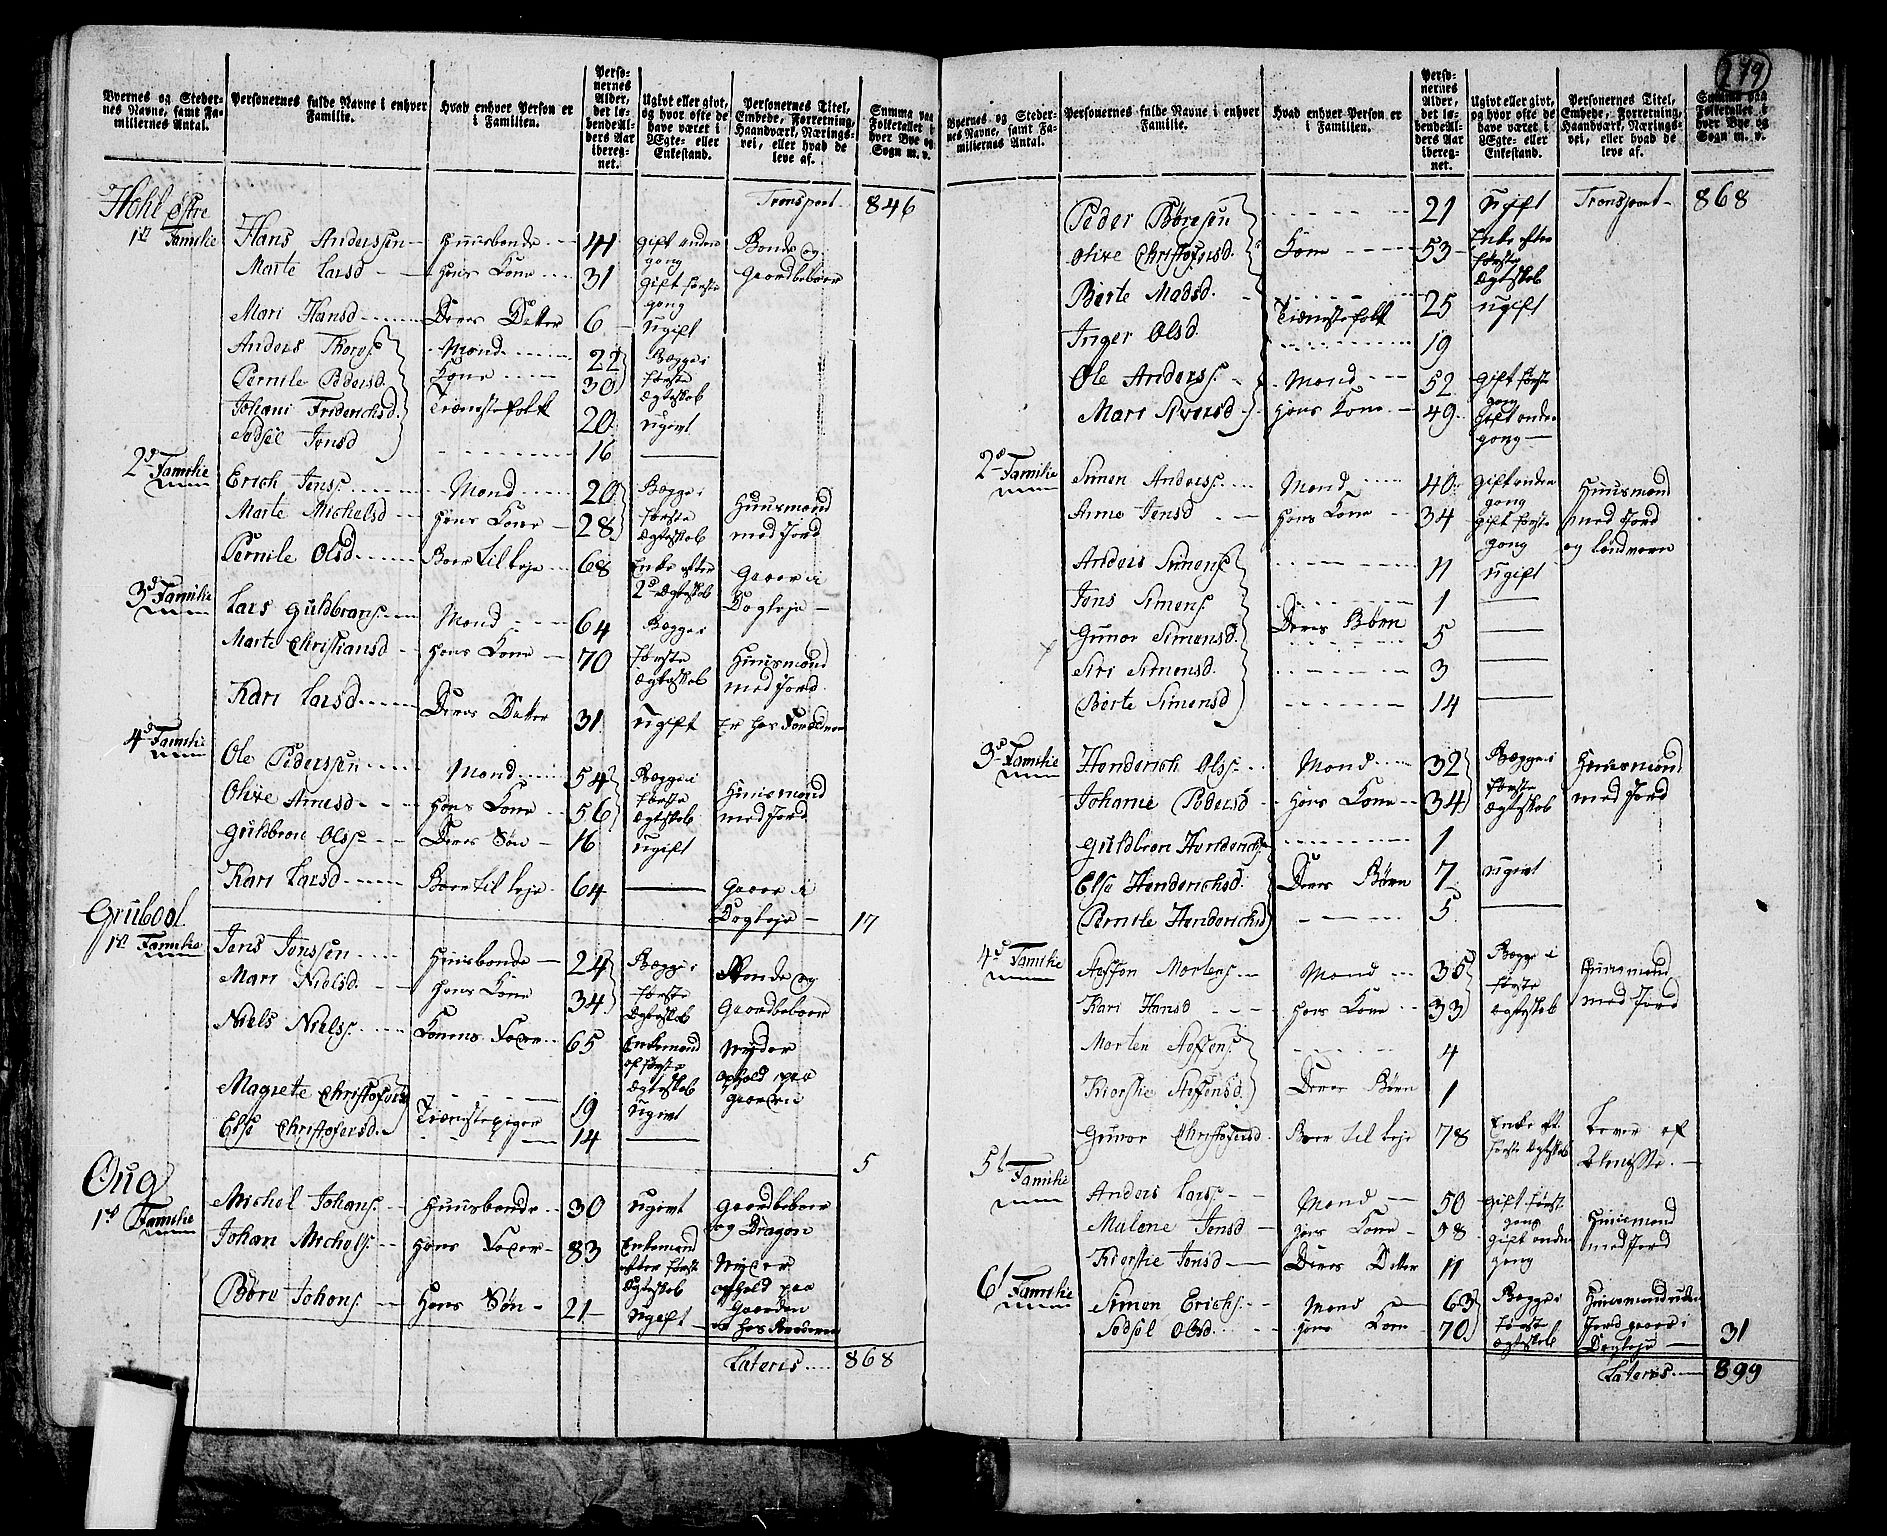 Byernes og Steder-
nes Navne, samt Fa-
miliernes Antal.
Personernes fulde Navne i enhver
Familie.
Hvad enhver Person er
i Familien.
Perso-
nernes
Alder,
det lø-
bende Al-
ders Aar
iberegnet.
Ugivt eller givt,
og hvor ofte de
have været i
Ægte- eller
Enkestand.
Personernes Titel,
Embede, Forretning,
Haandværk, Nærings-
vei, eller hvad de
leve af.
Summa paa
Folketallet i
hver Bye og
Sogn m. v.
Transport 846
Hohl Østre
1ste Familie Hans Anderssen Huusbonde 41 gift anden gang Bonde og Gaardbeboer
Marte Larsd hans Kone 31 gift første gang
Mari Hansd Deres Datter 6 ugift
Anders Thorss Mand 22 Begge i første Ægteskab
Pernile Pedersd Kone 30
Johani Friderichsd Tienestefolk 20 ugivt
Sodsel Jensd 16
2d Familie Erich Jenss Mand 20 Begge i første Ægteskab Huusmand med Jord
Marte Michelsd hans Kone 28
Pernile Olsd Boer til leje 68 Enke efter 2d Ægteskab Gaaer i Dagleje
3d Familie Lars Guldbrans Mand 64 Begge i første Ægteskab Huusmand med Jord
Marte Christiansd hans Kone 70
Kari Larsd Deres Datter 31 ugift Er hos Forældrene
4d Familie Ole Pederssen Mand 54 Begge i første Ægteskab Huusmand med Jord
Olive Arnesd hans Kone 56
Guldbran Olss Deres Søn 16 ugift
Kari Larsd Boer til leje 64 Gaaer i Dagleje 17
Grubool
1ste Familie Jens Jenssen Huusbonde 24 Begge i første Ægteskab Bonde og Gaardbeboer
Mari Nielsd hans Kone 34
Niels Nielss Konens Fader 65 Enkemand af første Ægteskab Nyder ophold paa Gaarden
Magrete Christofersd Tienestepiger 19 ugivt
Else Christofersd 14
5
Oug
1ste Familie Michel Johans Huusbonde 30 ugivt Gaardbeboer og Dragon
Johan Michelss hans Fader 83 Enkemand efter første Ægteskab Nyder ophold paa Gaarden
Børe Johans Hans Søn 21 Ugift er hos Broderen
Lateris 868
279
Byernes og Steder-
nes Navne, samt Fa-
miliernes Antal.
Personernes fulde Navne i enhver
Familie.
Hvad enhver Person er
i Familien.
Perso-
nernes
Alder,
det lø-
bende Al-
ders Aar
iberegnet.
Ugivt eller givt,
og hvor ofte de
have været i
Ægte- eller
Enkestand.
Personernes Titel,
Embede, Forretning,
Haandværk, Nærings-
vei, eller hvad de
leve af.
Summa paa
Folketallet i
hver Bye og
Sogn m. v.
Peder Børesen 21 Ugift Transport 868
Olive Christofersd. Kone 53 Enke efter første Ægteskab
Berte Madsd. Tienestefolk 25 ugift
Inger Olsd 19
Ole Anderss. Mand 52 gift første gang
Mari Siversd hans Kone 49 gift anden gang
2d Familie Simen Anderss. Mand 40 Gift anden gang Huusmand med Jord og
Anne Jensd hans Kone 34 gift første gang
Anders Simens. 11 ugift
Jens Simens. 1
Gunor Simensd. Deres Børn 5
Siri Simensd. 3
Berte Simensd 14
3d Familie Henderich Olss. Mand 32 Begge i første Ægteskab Huusmand med Jord
Johanne Pedersd hans Kone 34
Guldbran Henderichs 1
Else Henderichsd. Deres Børn 7 ugivt
Pernile Henderichsd 5
4d Familie Steffen Mortens. Mand 35 Begge i første Ægteskab Huusmand med Jord
Kari Hansd hans Kone 33
Morten Steffens. 4
Kierstie Steffensd. Deres Børn 1
Gunor Christofersd. Boer til leje 78 Enke eft. første Ægteskab Lever af Almisse.
5t Familie Anders Larss. Mand 50 gift først. gang Huusmand med Jord
Malene Jensd hans Kone 38 gift anden gang
Kierstie Jensd Deres Datter 11
6t Familie Simen Erichs. Mand 63 Begge i første Ægteskab Huusmand uden Jord gaaer i Dagleje
Sodsel Olsd. hans Kone 70
31
Lateris 899